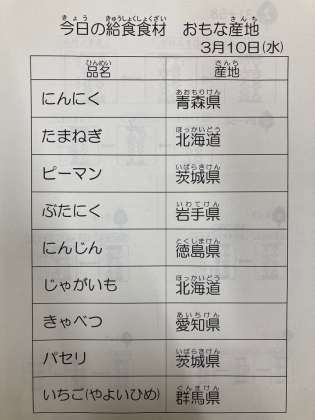 今日の給食食材 おもな産地
3月10日(水)
品名 産地
にんにく 青森県
たまねぎ 北海道
ピーマン 茨城県
ぶたにく 岩手県
にんじん 徳島県
じゃがいも 北海道
きゃべつ 愛知県
パセリ 茨城県
いちご(やよいひめ) 群馬県